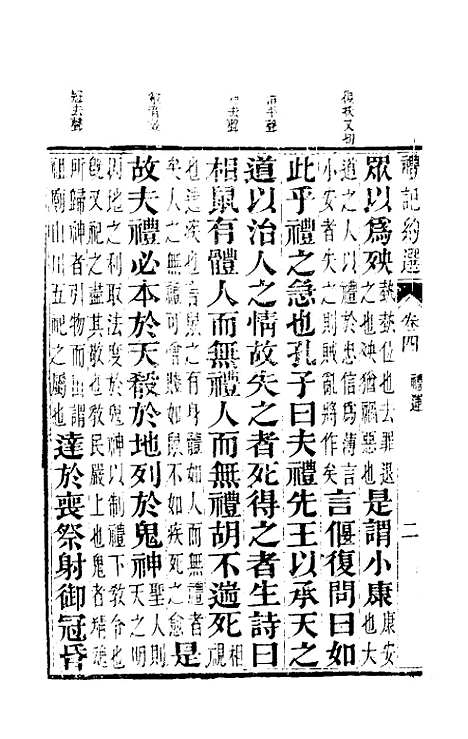 禮記約選 卷四 禮運 二
衆以爲殃埶埶位也去罪退之也殃猶禍惡也是謂小康康安也大
道之人以禮於忠信爲薄言小安者失之則賊亂將作矣言偃復問曰如
此乎禮之急也孔子曰夫禮先王以承天之
道以治人之情故失之者死得之者生詩曰
相鼠有體人而無禮人而無禮胡不遄死相視
也遄疾也言鼠之有身體如人而無禮者矣人之無禮可憎賤如鼠不如疾死之愈是
故夫禮必本於天殽於地列於鬼神聖人則天之明
因地之利取法度於鬼神以制禮下教令也旣又祀之盡其敬也敎民嚴上也鬼者精魂
所歸神者引物而出謂祖廟山川五祀之屬也達於喪祭射御冠昏
復扶又切
去聲
去聲